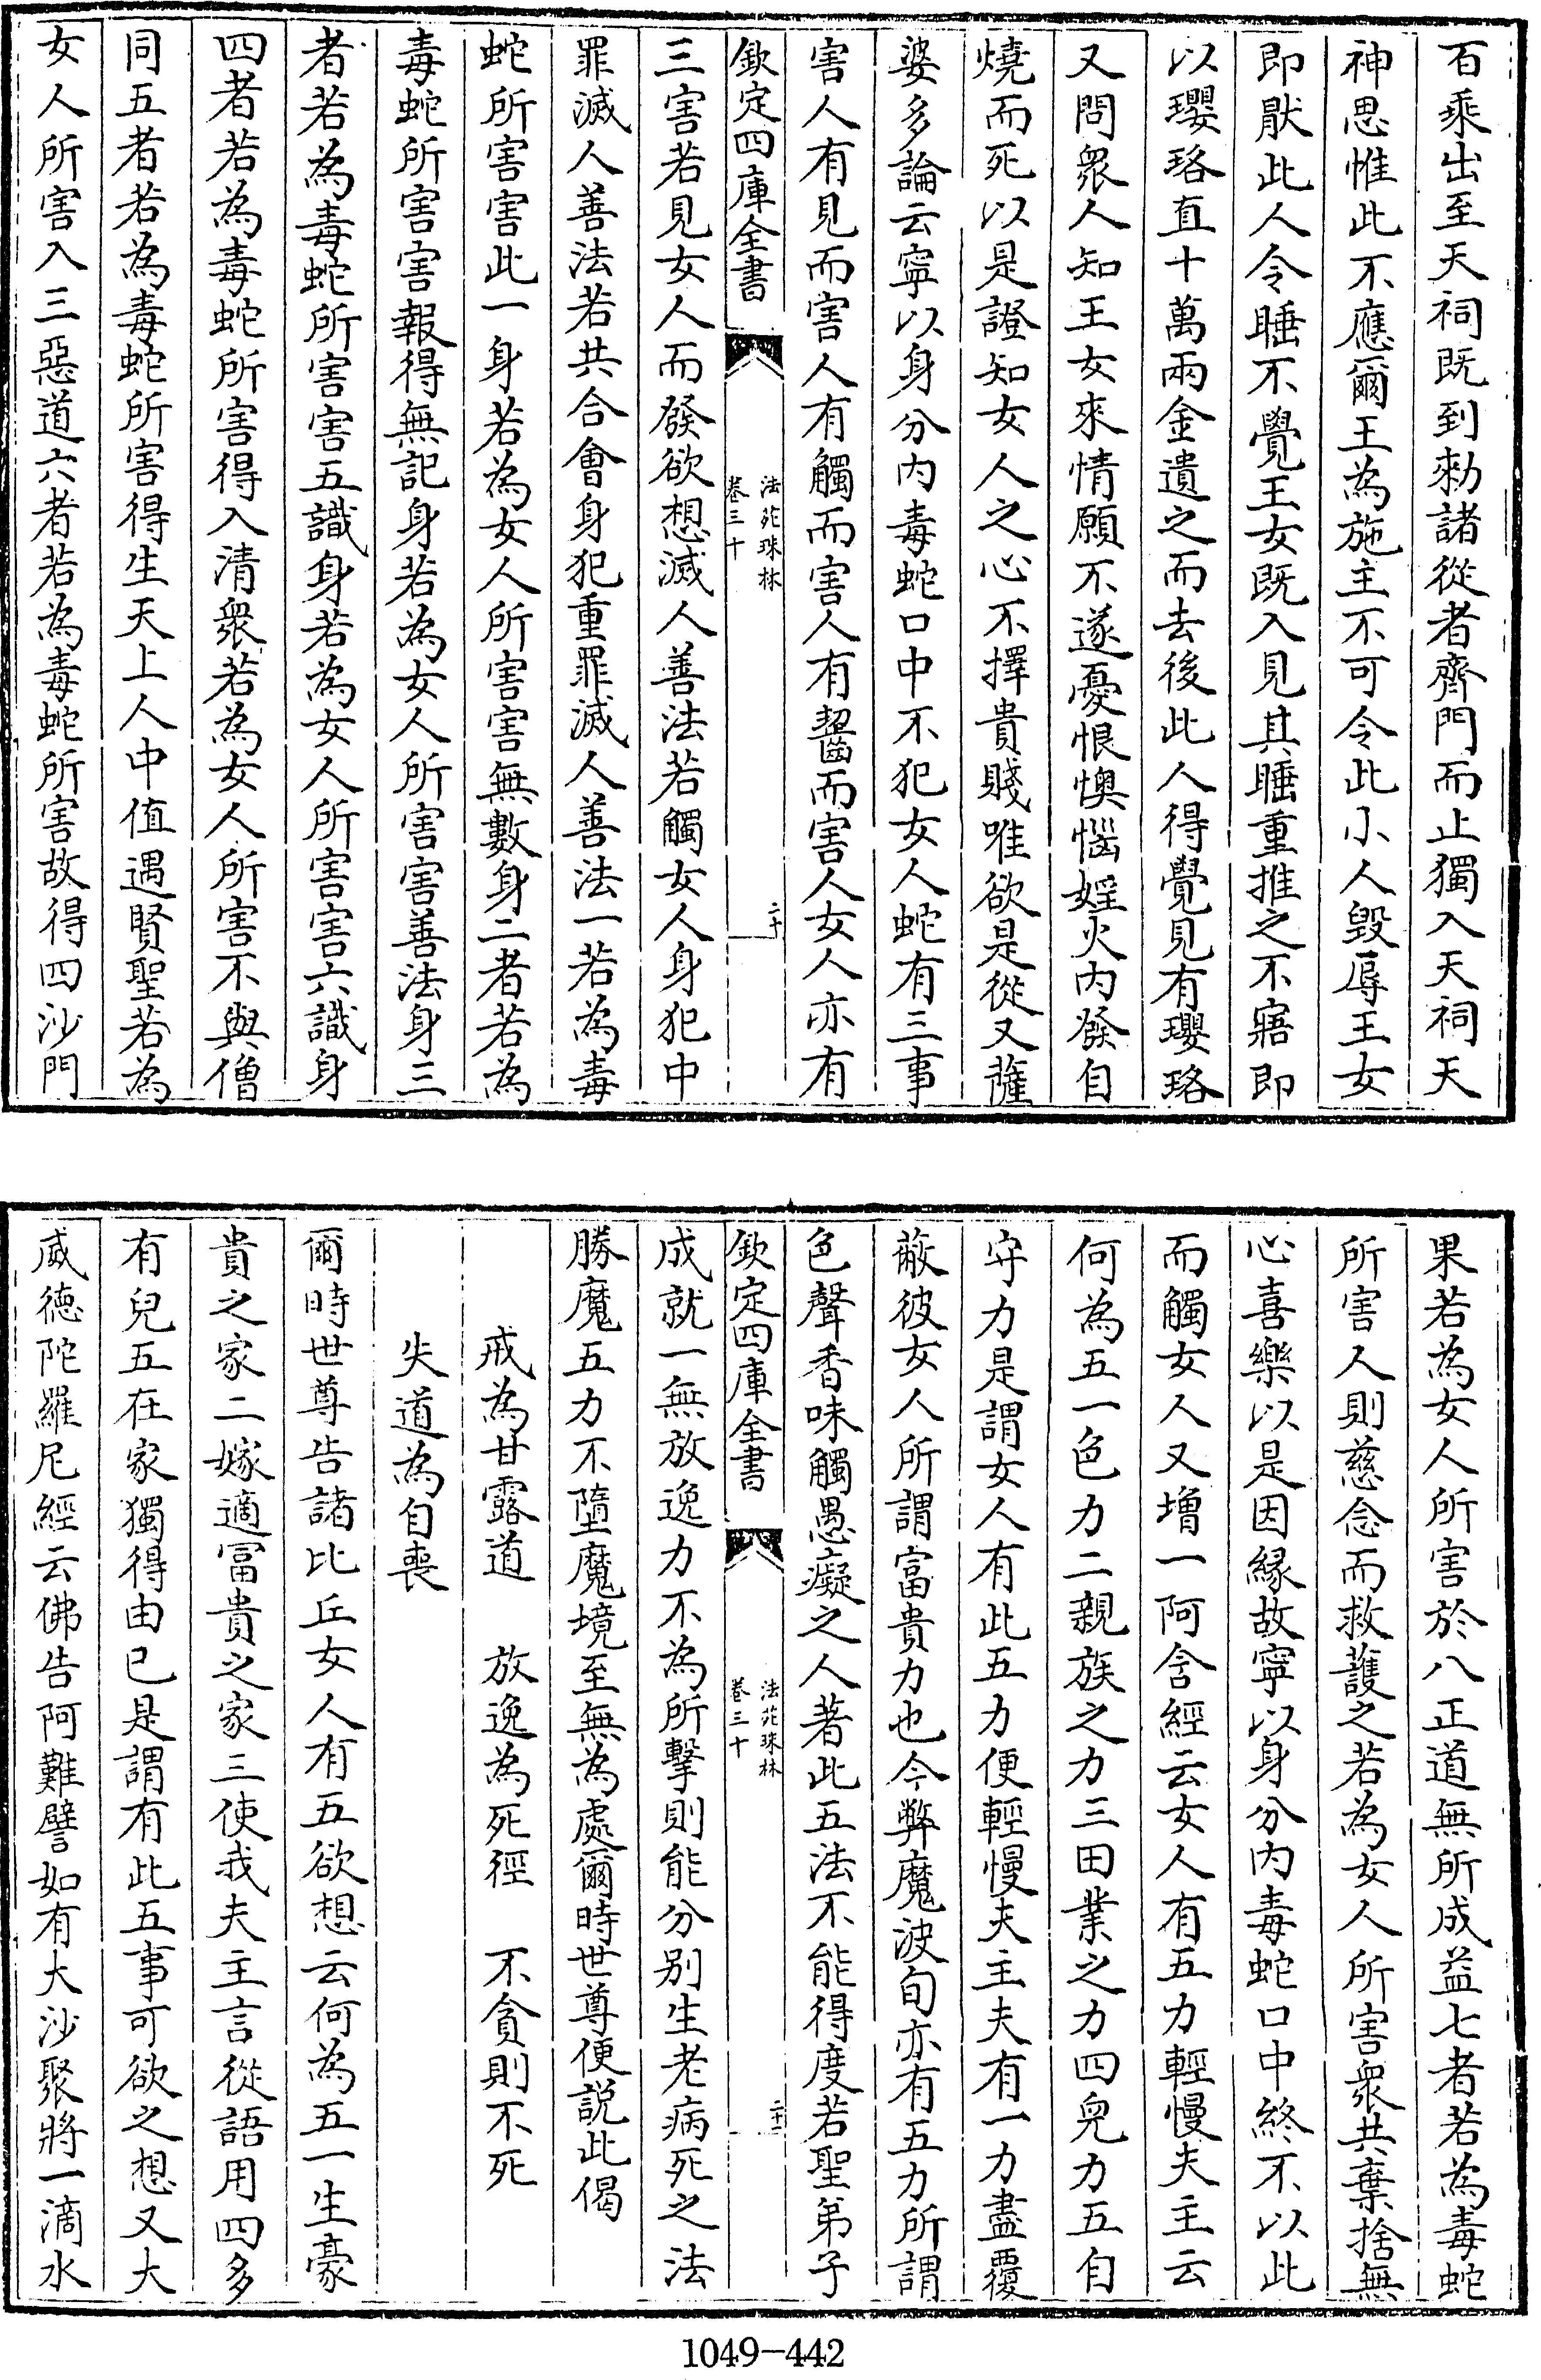 百乘出至天祠既到勑諸從者齊門而止獨入天祠天
神思惟此不應爾王為施主不可令此小人毀辱王女
即猒此人令睡不覺王女既入見其睡重推之不寤即
以瓔珞直十萬兩金遺之而去後此人得覺見有瓔珞
又問衆人知王女來情願不遂憂恨懊惱婬火内發自
燒而死以是證知女人之心不擇貴賤唯欲是從又薩
婆多論云寧以身分内毒蛇口中不犯女人蛇有三事
害人有見而害人有觸而害人有齧而害人女人亦有
欽定四庫全書
法苑珠林
卷三十
二十
三害若見女人而發欲想滅人善法若觸女人身犯中
罪滅人善法若共合會身犯重罪滅人善法一若為毒
蛇所害害此一身若為女人所害害無數身二者若為
毒蛇所害害報得無記身若為女人所害害善法身三
者若為毒蛇所害害五識身若為女人所害害六識身
四者若為毒蛇所害得入清衆若為女人所害不與僧
同五者若為毒蛇所害得生天上人中值遇賢聖若為
女人所害入三惡道六者若為毒蛇所害故得四沙門
果若為女人所害於八正道無所成益七者若為毒蛇
所害人則慈念而救護之若為女人所害衆共棄捨無
心喜樂以是因緣故寧以身分内毒蛇口中終不以此
而觸女人又增一阿含經云女人有五力輕慢夫主云
何為五一色力二親族之力三田業之力四兒力五自
守力是謂女人有此五力便輕慢夫主夫有一力盡覆
蔽彼女人所謂富貴力也今弊魔波旬亦有五力所謂
色聲香味觸愚癡之人著此五法不能得度若聖弟子
欽定四庫全書
法苑珠林
卷三十
二十一
成就一無放逸力不為所擊則能分别生老病死之法
勝魔五力不墮魔境至無為處爾時世尊便説此偈
戒為甘露道　放逸為死徑　不貪則不死
失道為自喪
爾時世尊告諸比丘女人有五欲想云何為五一生豪
貴之家二嫁適富貴之家三使我夫主言從語用四多
有兒五在家獨得由已是謂有此五事可欲之想又大
威德陀羅尼經云佛告阿難譬如有大沙聚將一滴水
1049-442